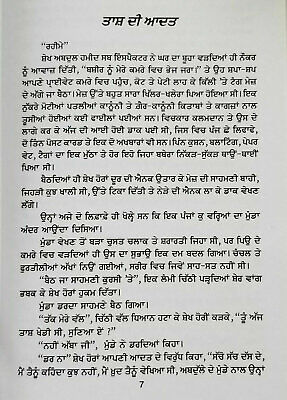 ਤਾਸ਼ ਦੀ ਆਦਤ
"ਰਹੀਮੇ"
ਸ਼ੇਖ ਅਬਦੁਲ ਹਮੀਦ ਸਬ ਇੰਸਪੈਕਟਰ ਨੇ ਘਰ ਦਾ ਬੂਹਾ ਵੜਦਿਆਂ ਹੀ ਨੌਕਰ
ਨੂੰ ਆਵਾਜ਼ ਦਿੱਤੀ, "ਬਸ਼ੀਰ ਨੂੰ ਮੇਰੇ ਕਮਰੇ ਵਿਚ ਭੇਜ ਜਰਾ।" ਤੇ ਉਹ ਸ਼ਪਾ-ਸ਼ਪ
ਆਪਣੇ ਪ੍ਰਾਈਵੇਟ ਕਮਰੇ ਵਿਚ ਪਹੁੰਚ, ਕੋਟ ਤੇ ਪੇਟੀ ਲਾਹ ਕੇ ਕਿੱਲੀ 'ਤੇ ਟੰਗ ਮੇਜ਼
ਦੇ ਅੱਗੇ ਜਾ ਬੈਠਾ। ਮੇਜ਼ ਤੇ ਬਹੁਤ ਸਾਰਾ ਖਿੱਲਰ-ਖਲੇਰਾ ਪਿਆ ਹੋਇਆ ਸੀ। ਇਕ
ਨੁੱਕਰੇ ਮੋਟੀਆਂ ਪਤਲੀਆਂ ਕਾਨੂੰਨੀ ਤੇ ਗ਼ੈਰ-ਕਾਨੂੰਨੀ ਕਿਤਾਬਾਂ ਤੇ ਕਾਗਜ਼ਾਂ ਨਾਲ
ਤੂਸੀਆਂ ਹੋਈਆਂ ਕਈ ਫਾਈਲਾਂ ਪਈਆਂ ਸਨ। ਵਿਚਕਾਰ ਕਲਮਦਾਨ ਤੇ ਉਸ ਦੇ
ਲਾਗੇ ਕਰ ਕੇ ਅੱਜ ਦੀ ਆਈ ਹੋਈ ਡਾਕ ਪਈ ਸੀ, ਜਿਸ ਵਿਚ ਪੰਜ ਛੇ ਲਿਫਾਫੇ,
ਦੋ ਤਿੰਨ ਪੋਸਟ ਕਾਰਡ ਤੇ ਇਕ ਦੋ ਅਖਬਾਰਾਂ ਵੀ ਸਨ। ਪਿੰਨ ਕੁਸ਼ਨ, ਬਲਾਟਿੰਗ, ਪੇਪਰ
ਵੇਟ, ਟੈਗਾਂ ਦਾ ਇਕ ਮੁੱਠਾ ਤੇ ਹੋਰ ਇਹੋ ਜਿਹਾ ਬਥੇਰਾ ਨਿੱਕੜ-ਸੁੱਕੜ ਥਾਉਂ-ਥਾਈਂ
ਪਿਆ ਸੀ।
ਬੈਠਦਿਆਂ ਹੀ ਸ਼ੇਖ ਹੋਰਾਂ ਦੂਰ ਦੀ ਐਨਕ ਉਤਾਰ ਕੇ ਮੇਜ਼ ਦੀ ਸਾਹਮਣੀ ਬਾਹੀ,
ਜਿਹੜੀ ਕੁਝ ਖਾਲੀ ਸੀ, ਉੱਤੇ ਟਿਕਾ ਦਿੱਤੀ ਤੇ ਨੇੜੇ ਦੀ ਐਨਕ ਲਾ ਕੇ ਡਾਕ ਵੇਖਣ
ਲੱਗੇ।
ਉਨ੍ਹਾਂ ਅਜੇ ਦੋ ਲਿਫਾਫੇ ਹੀ ਖੋਲ੍ਹੇ ਸਨ ਕਿ ਇਕ ਪੰਜਾਂ ਕੁ ਵਰ੍ਹਿਆਂ ਦਾ ਮੁੰਡਾ
ਅੰਦਰ ਆਉਂਦਾ ਦਿਸਿਆ।
ਮੁੰਡਾ ਵੇਖਣ ਤੋਂ ਬੜਾ ਚੁਸਤ ਚਲਾਕ ਤੇ ਸ਼ਰਾਰਤੀ ਜਿਹਾ ਸੀ, ਪਰ ਪਿਉ ਦੇ
ਕਮਰੇ ਵਿਚ ਵੜਦਿਆਂ ਹੀ ਉਸ ਦਾ ਸੁਭਾਉ ਇਕ ਦਮ ਬਦਲ ਗਿਆ। ਚੰਚਲ ਤੇ
ਫੁਰਤੀਲੀਆਂ ਅੱਖਾਂ ਨਿਉਂ ਗਈਆਂ, ਸਰੀਰ ਵਿਚ ਜਿਵੇਂ ਸਾਹ-ਸਤ ਨਹੀਂ ਸੀ।
"ਬੈਠ ਜਾ ਸਾਹਮਣੀ ਕੁਰਸੀ 'ਤੇ", ਇਕ ਲੰਮੀ ਚਿੱਠੀ ਪੜ੍ਹਦਿਆਂ ਸ਼ੇਰ ਵਾਂਗ
ਭਬਕ ਕੇ ਸ਼ੇਖ ਹੋਰਾਂ ਹੁਕਮ ਦਿੱਤਾ।
ਮੁੰਡਾ ਡਰਦਾ ਸਾਹਮਣੇ ਬੈਠ ਗਿਆ।
"ਤੱਕ ਮੇਰੇ ਵੱਲ", ਚਿੱਠੀ ਵੱਲ ਧਿਆਨ ਹਟਾ ਕੇ ਸ਼ੇਖ ਹੋਰੀਂ ਕੜਕੇ, "ਤੂੰ ਅੱਜ
ਤਾਸ਼ ਖੇਡੀ ਸੀ, ਸੁਣਿਆ ਏ ?"
"ਨਹੀਂ ਅੱਬਾ ਜੀ", ਮੁੰਡੇ ਨੇ ਡਰਦਿਆਂ ਕਿਹਾ।
"ਡਰ ਨਾ" ਸ਼ੇਖ ਹੋਰਾਂ ਆਪਣੀ ਆਦਤ ਦੇ ਵਿਰੁੱਧ ਕਿਹਾ, "ਸੱਚੋ ਸੱਚ ਦੱਸ ਦੇ,
ਮੈਂ ਤੈਨੂੰ ਕਹਿੰਦਾ ਕੁਝ ਨਹੀਂ, ਮੈਂ ਖ਼ੁਦ ਤੈਨੂੰ ਵੇਖਿਆ ਸੀ, ਅਬਦੁੱਲੇ ਦੇ ਮੁੰਡੇ ਨਾਲ ਉਨ੍ਹਾਂ
7